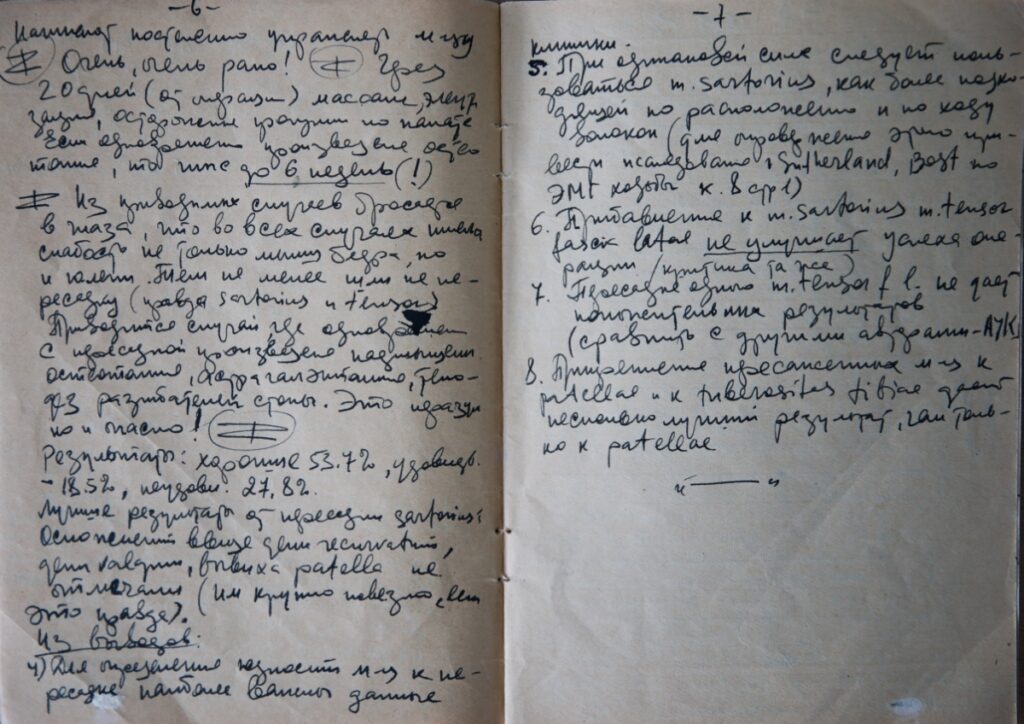 - 6 -
Начинают постепенно упражнять м-цу
Очень, очень рано! Через
20 дней (от операции) массаж,
осторожные по палате
Если одновременно произведена остео-
томия, то гипс до 6 недель (!)
Из приводимых случаев бросается
в глаза, что во всех случаях имела
слабость не только мышц бедра, но
и голени. Тем не менее шли на пе-
ресадку (правда sartorius и tensor)
Приводится случай где одновременно
с пересадкой произведена надмыщелк.
остеотомия, астрагалэктомия, тено-
дез разгибателей стопы. Это неразум-
но и опасно!
Результаты: хорошие 53.7%, удовлетв.
- 18.5%, неудовл. 27,8%.
Лучшие результаты от пересадки sartorius:
Осложнений в виде genu recurvatum,
genu valgum, вывиха patella не
отмечали (им крупно повезло, если
это правда).
Из выводов:
4) Для определения годности м-ц к пе-
ресадке наиболее важны данные
- 7 -
клиники.
5. При одинаковой силе следует поль-
зоваться m. sartorius, как более подхо-
дящей по расположению и по ходу
волокон (для опровержения этого при-
вести исследования Sutherland, Bost по
ЭМГ ходьбы к. 8 стр 1)
6. Прибавление к m. sartorius m. tensor
fascia latae не улучшает успеха опе-
рации (критика та же)
7. Пересадка одного m. tensor f. l. не дает
положительных результатов
(сравнить с другими авторами - АУК)
8. Прикрепление пересаженных м-ц к
patellae и к tuberositas tibiae дает
несколько лучший результат, чем толь-
ко к patellae